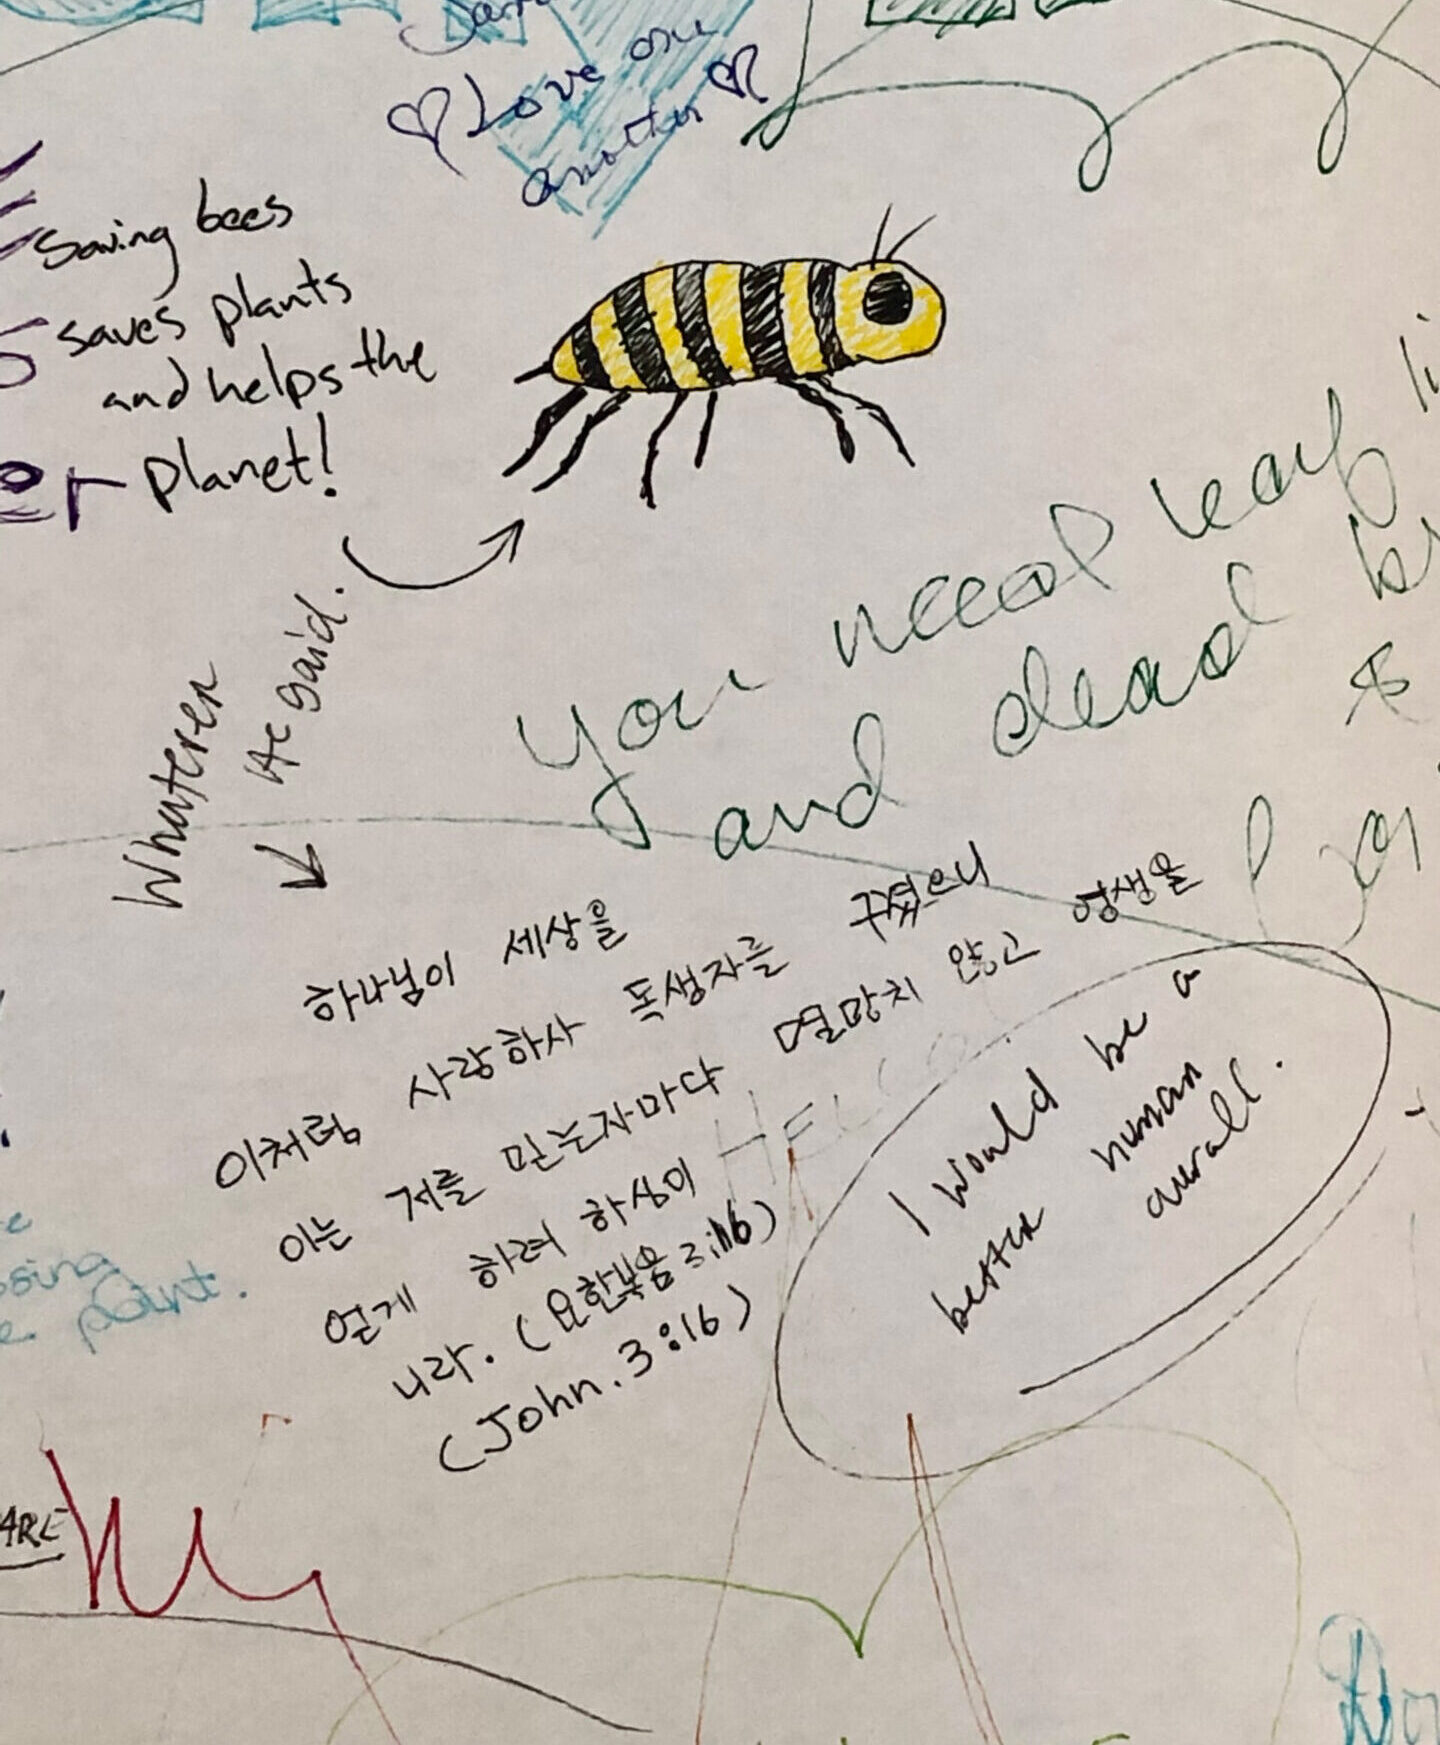 ♡ Love one
another ♡
Saving bees
saves plants
and helps the
planet!
You need leaf
and dead
&
Whatever
He said.
하나님이 세상을
이처럼 사랑하사 독생자를 주셨으니
이는 저를 믿는자마다 멸망치 않고 영생을
얻게 하려 하심이
니라. (요한복음 3:16)
(John. 3:16)
HELLO
I would be a
better human
overall.
point.
ARE